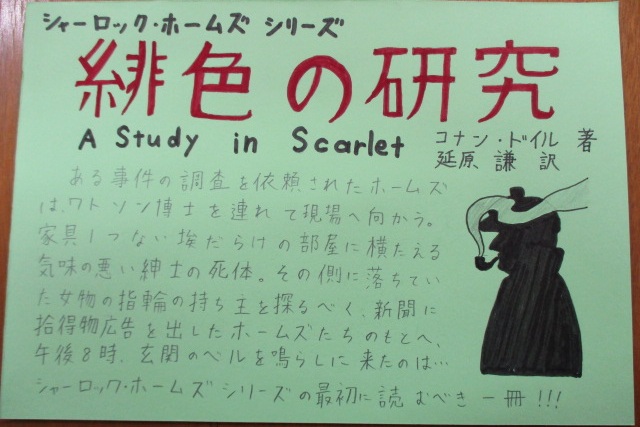 シャーロック・ホームズ シリーズ
緋色の研究
A Study in Scarlet
コナン・ドイル 著
延原 謙 訳
ある事件の調査を依頼されたホームズ
は、ワトソン博士を連れて現場へ向かう。
家具1つない埃だらけの部屋に横たえる
気味の悪い紳士の死体。その側に落ちてい
た女物の指輪の持ち主を探るべく、新聞に
拾得物広告を出したホームズたちのもとへ、
午後8時、玄関のベルを鳴らしに来たのは…
シャーロック・ホームズ シリーズの最初に読むべき一冊!!!